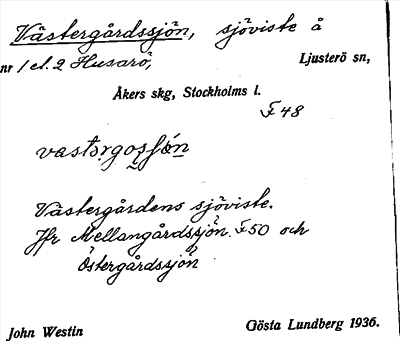 Västergårdssjön, sjöviste å
nr 1 el. 2 Husarö, Ljusterö sn,
Åkers skg, Stockholms l.
F 48
Västergårdens sjöviste.
Jfr Mellangårdssjön F 50 och
Östergårdssjön
John Westin Gösta Lundberg 1936.